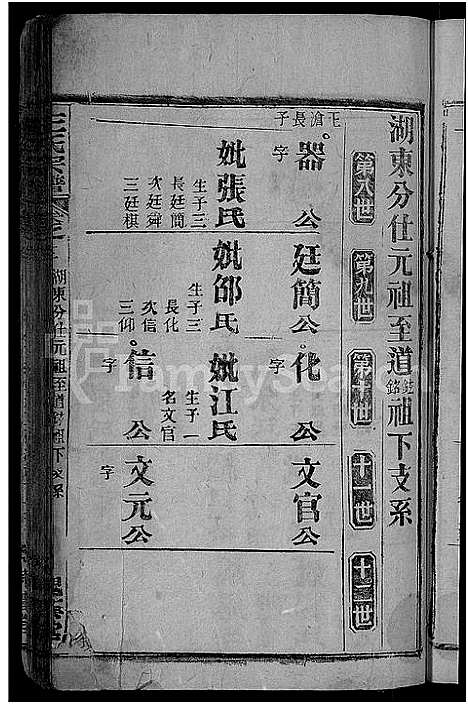 湖東分仕元祖至道鉉銘祖下支系
第八世
第九世
第十世
十一世
十二世
玉滄長子
器公
字
妣張氏
生子三
長廷簡
次廷舜
三廷棋
廷簡公
妣邵氏
生子三
長化
次信
三仰
化公
字
妣江氏
生子一
名文官
信公
字
文官公
文元公
字
湖東分仕元祖至道鉉銘祖下支系
FamilySearch